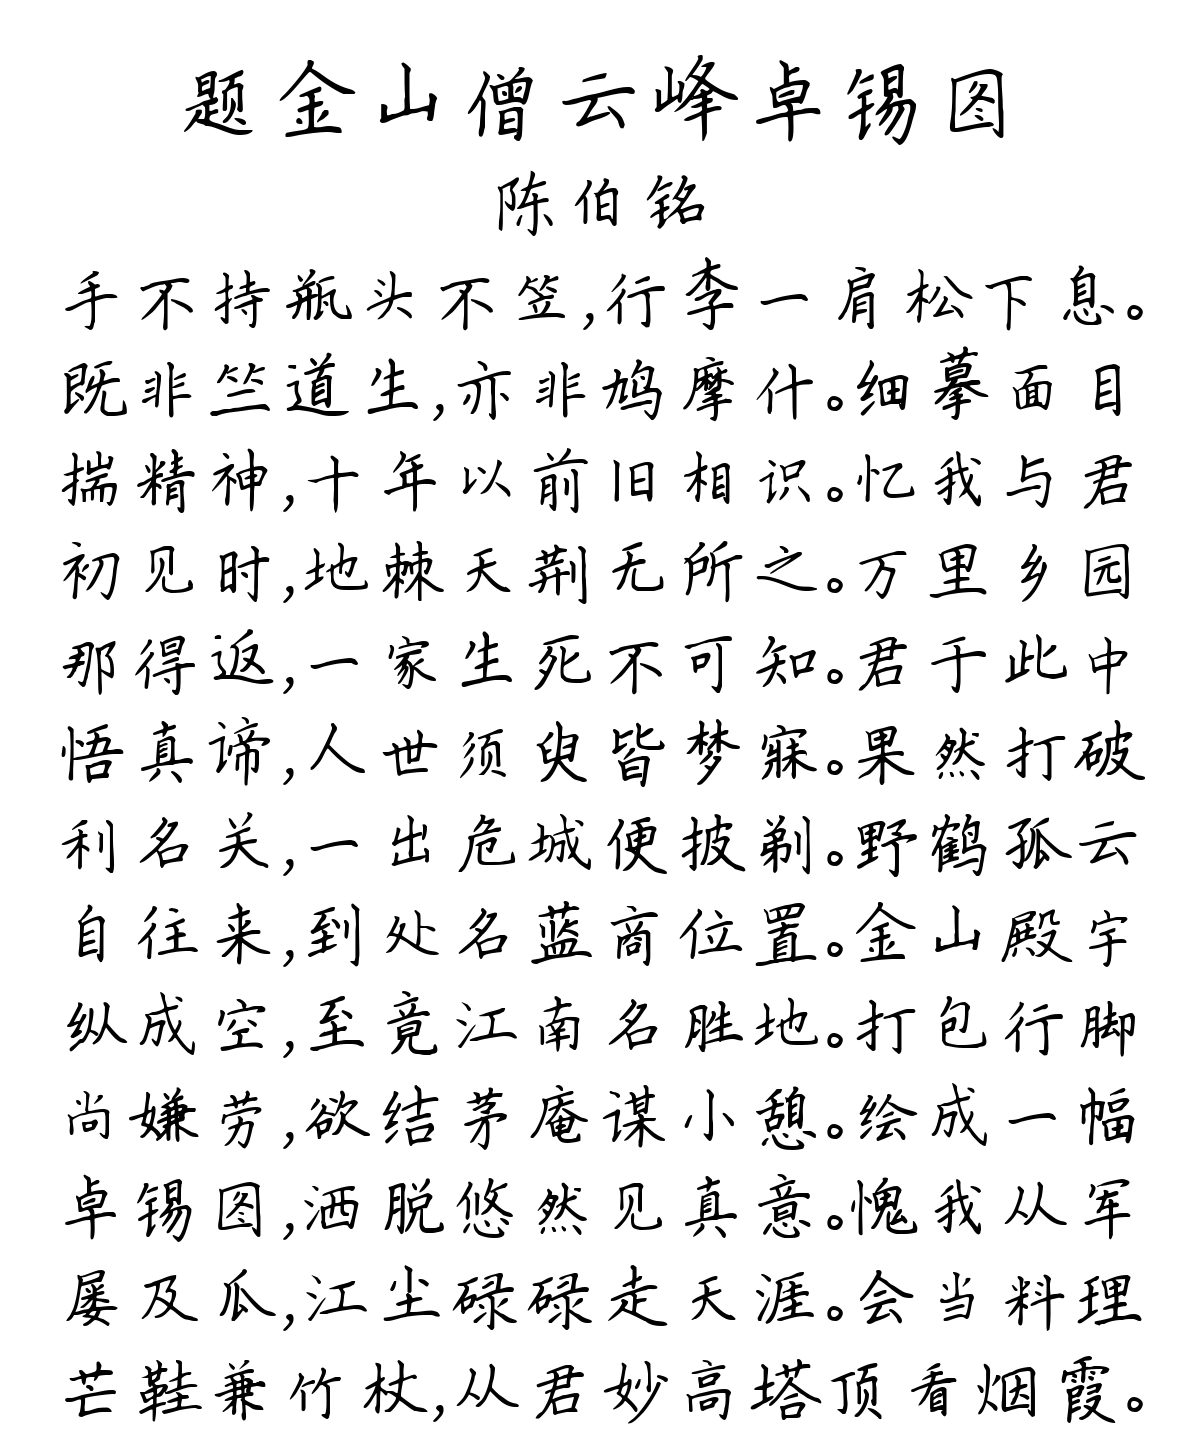 题金山僧云峰卓锡图
陈伯铭
手不持瓶头不笠,行李一肩松下息。
既非竺道生,亦非鸠摩什。细摹面目
揣精神,十年以前旧相识。忆我与君
初见时,地棘天荆无所之。万里乡园
那得返,一家生死不可知。君于此中
悟真谛,人世须臾皆梦寐。果然打破
利名关,一出危城便披剃。野鹤孤云
自往来,到处名蓝商位置。金山殿宇
纵成空,至竟江南名胜地。打包行脚
尚嫌劳,欲结茅庵谋小憩。绘成一幅
卓锡图,洒脱悠然见真意。愧我从军
屡及瓜,江尘碌碌走天涯。会当料理
芒鞋兼竹杖,从君妙高塔顶看烟霞。